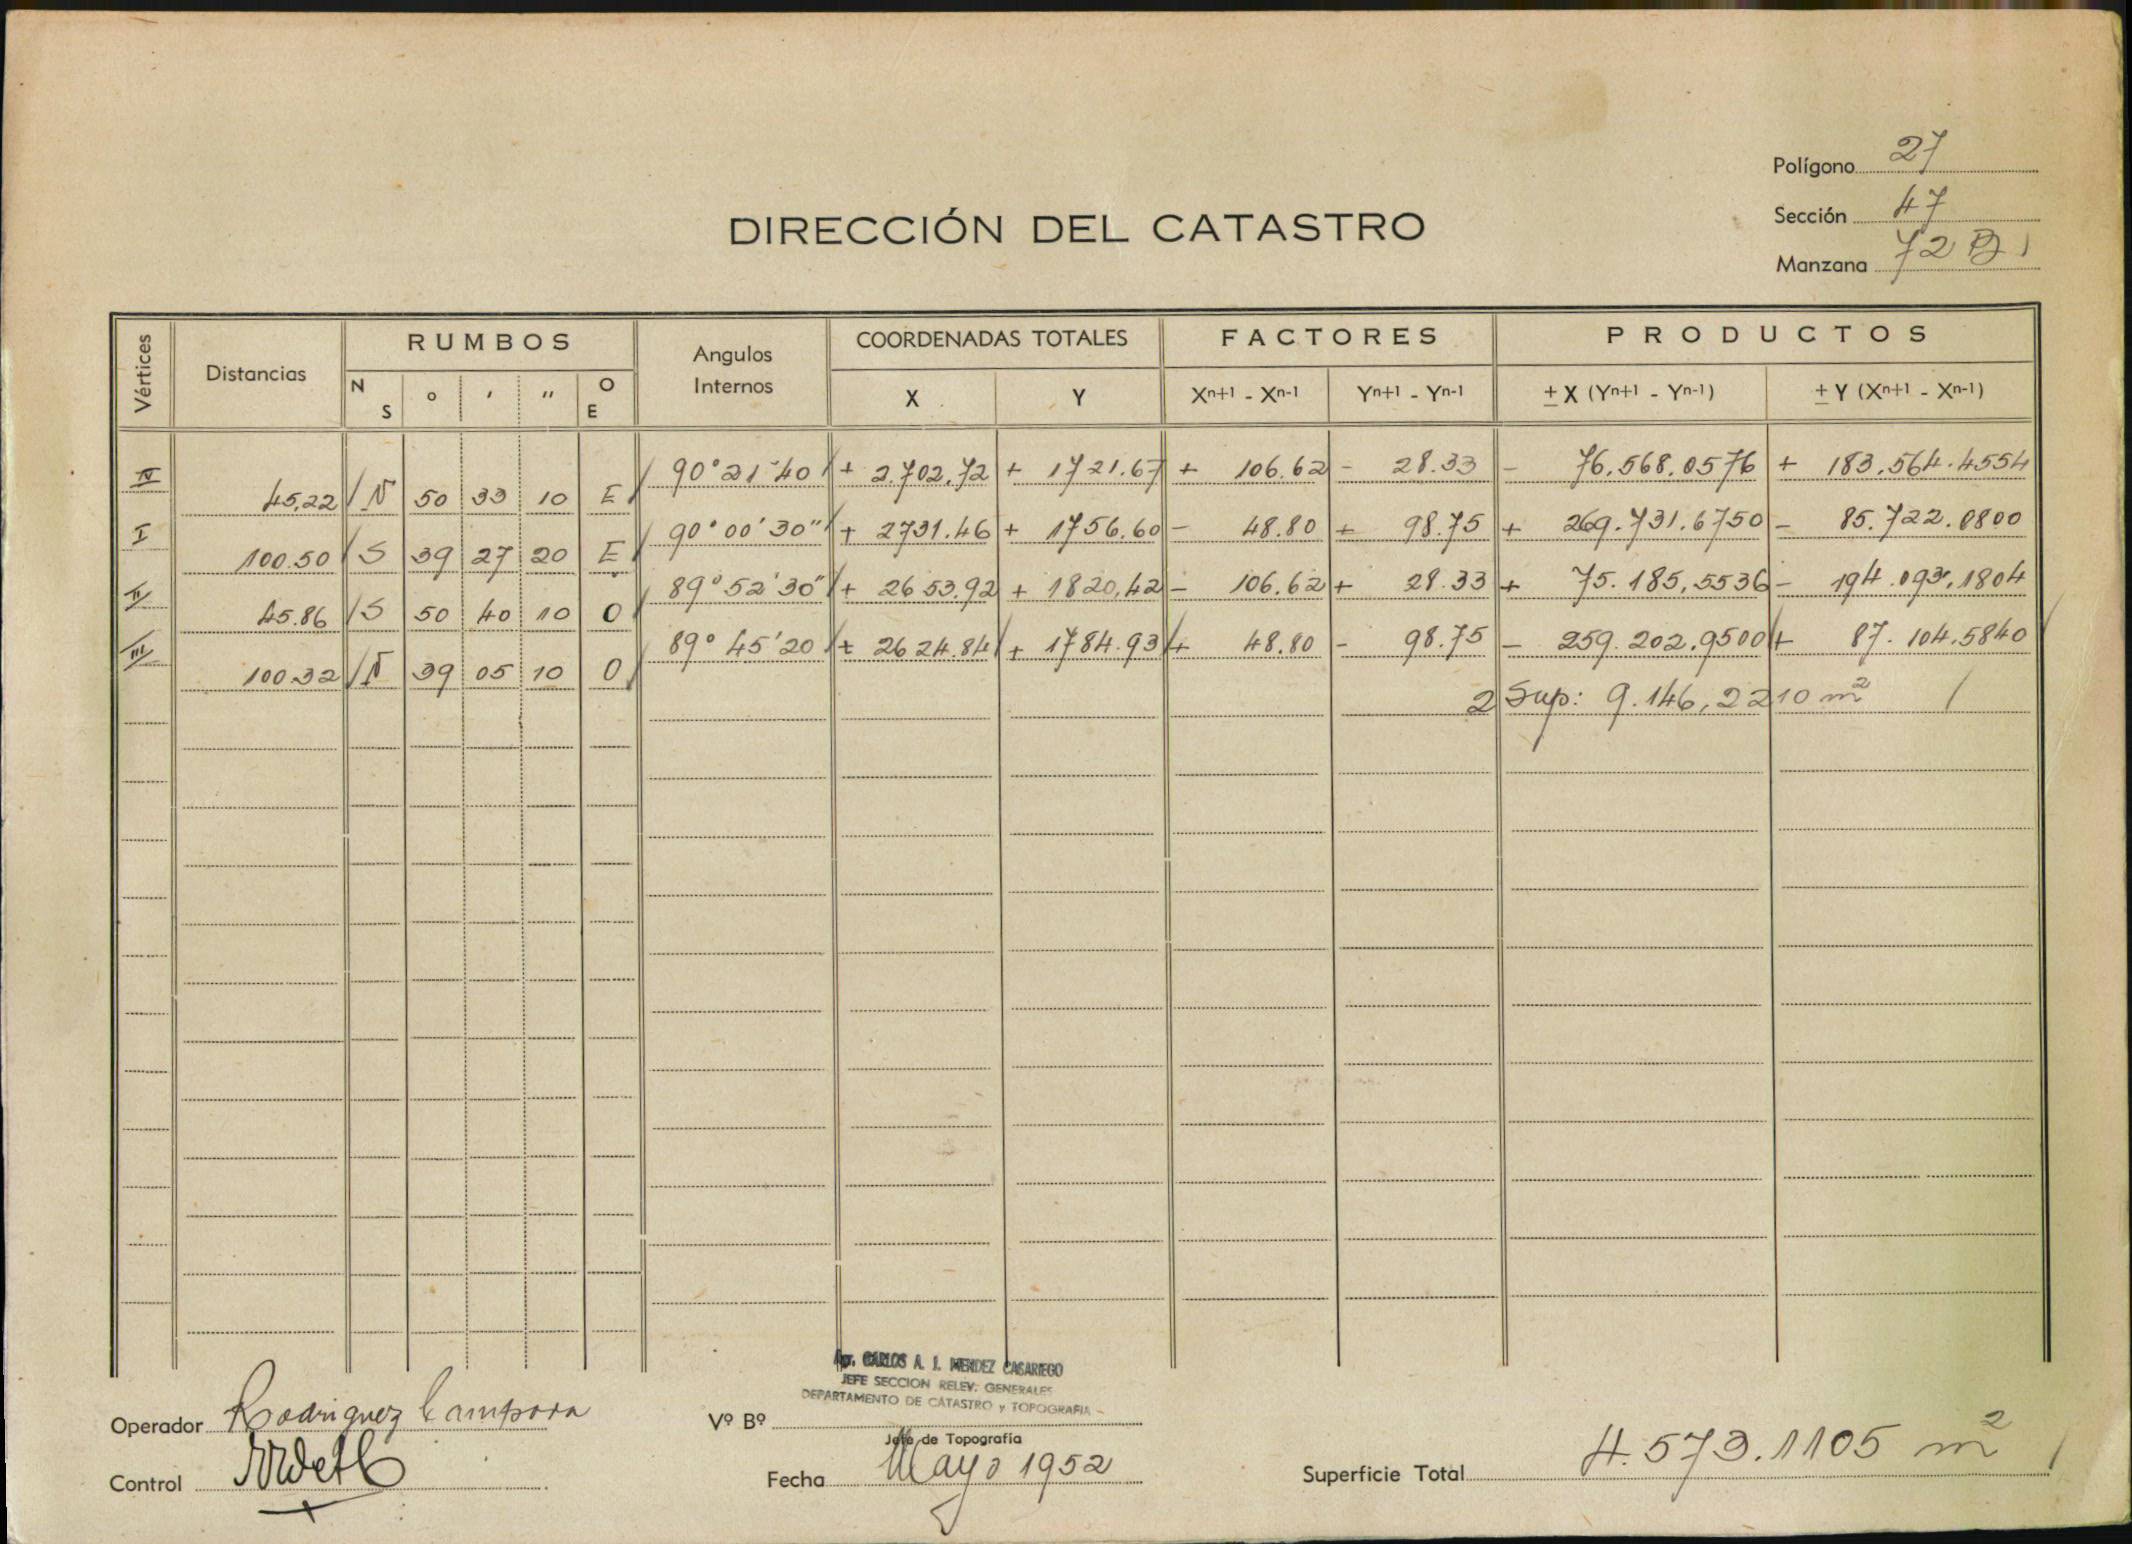 Polígono 27
Sección 47
Manzana 72 B
DIRECCIÓN DEL CATASTRO
Vértices Distancias RUMBOS Angulos Internos COORDENADAS TOTALES FACTORES PRODUCTOS
N S ° ' " O E X Y Xn+1 - Xn-1 Yn+1 - Yn-1 ± X (Yn+1 - Yn-1) ± Y (Xn+1 - Xn-1)
IV 90° 21' 40 + 2.702.72 + 1721.67 + 106.62 - 28.33 - 76.568.0576 + 183.564.4554
45,22 N 50 33 10 E
I 90° 00' 30" + 2731.46 + 1756.60 - 48.80 + 98.75 + 269.731.6750 - 85.722.0800
100.50 S 39 27 20 E
II 89° 52' 30" + 2653.92 + 1820,42 - 106.62 + 28.33 + 75.185,5536 - 194.093,1804
45.86 S 50 40 10 O
III 89° 45' 20 + 2624.84 + 1784.93 + 48.80 - 98.75 - 259.202.9500 + 87.104.5840
100.32 N 39 05 10 O
2 Sup: 9.146,2210 m²
Agr. CARLOS A. J. MENDEZ CASARIEGO
JEFE SECCION RELEV. GENERALES
DEPARTAMENTO DE CATASTRO y TOPOGRAFIA
Operador Rodriguez Campora
Vº Bº
Jefe de Topografía
Control
Fecha Mayo 1952
Superficie Total 4.573.1105 m²